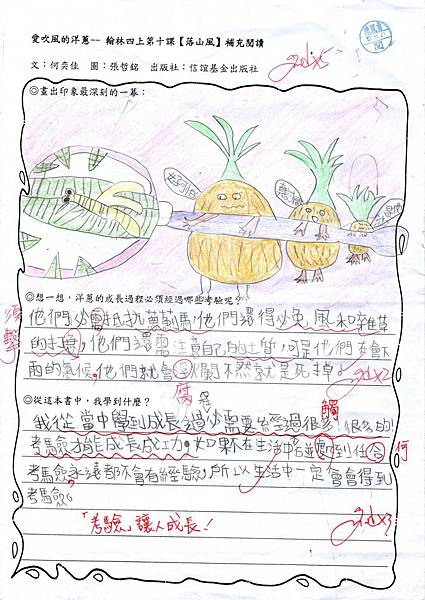 愛吹風的洋蔥-- 翰林四上第十課【落山風】補充閱讀
文:何奕佳 圖:張哲銘 出版社:信誼基金出版社
good x5
◎畫出印象最深刻的一幕:
◎想一想,洋蔥的成長過程必須經過哪些考驗呢?
他們必需抵抗薊馬,他們還得必免風和雜草
須
擊
的打,他們還需注意自己的土質,可是他們在會下
雨的氣候,他們就會爛不然就是死掉。
good x2
腐
◎從這本書中,我學到什麼?
程
觸
我從當中學到成長過必需要經過很多、很多的
考驗才能成長成功。如果在生活中到任合
何
考驗永遠都不會有經驗,所以生活中一定會會得到
考驗。
「考驗」讓人成長!
good x3